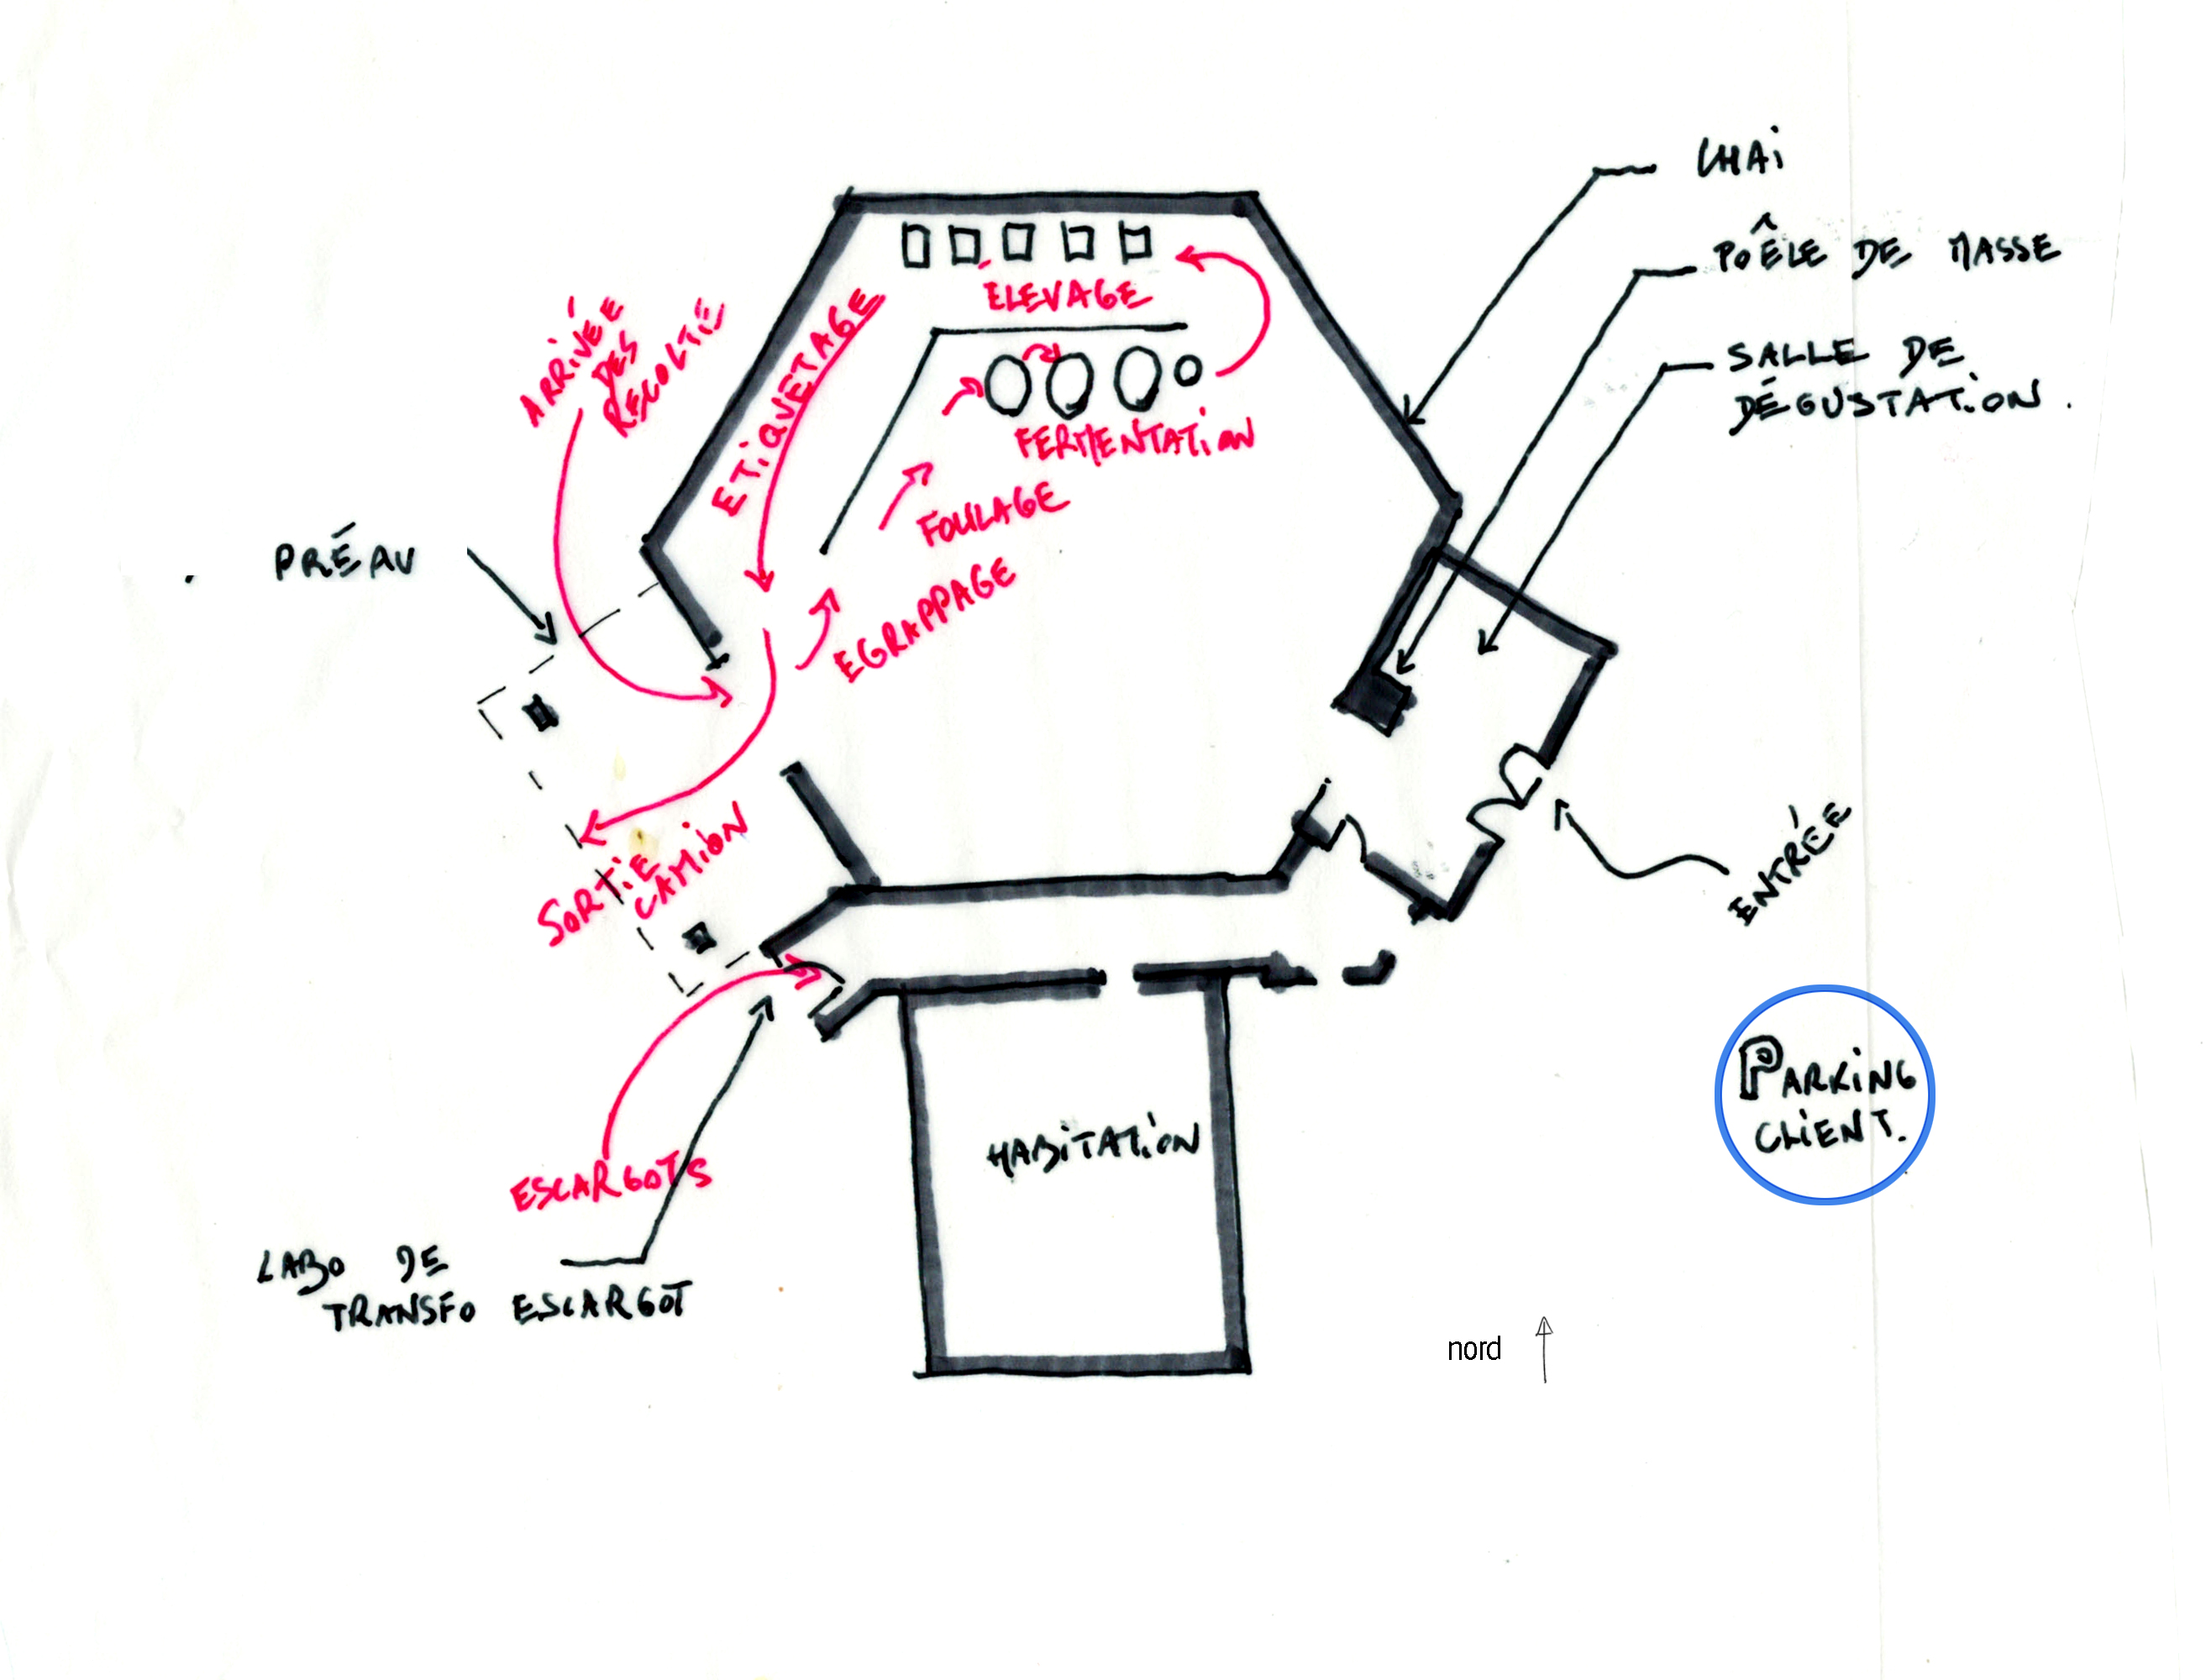 CHAi
POÊLE DE MASSE
SALLE DE
DÉGUSTATiON.
ÉLEVAGE
ARRIVÉE
DES
RECOLTE
ETiQUETAGE
FERMENTATiON
FOULAGE
EGRAPPAGE
PRÉAU
SORTIE
CAMiON
ENTRÉE
PARKiNG
CLiENT.
HABiTATiON
ESCARGOTS
LABO DE
TRANSFO ESCARGOT
nord